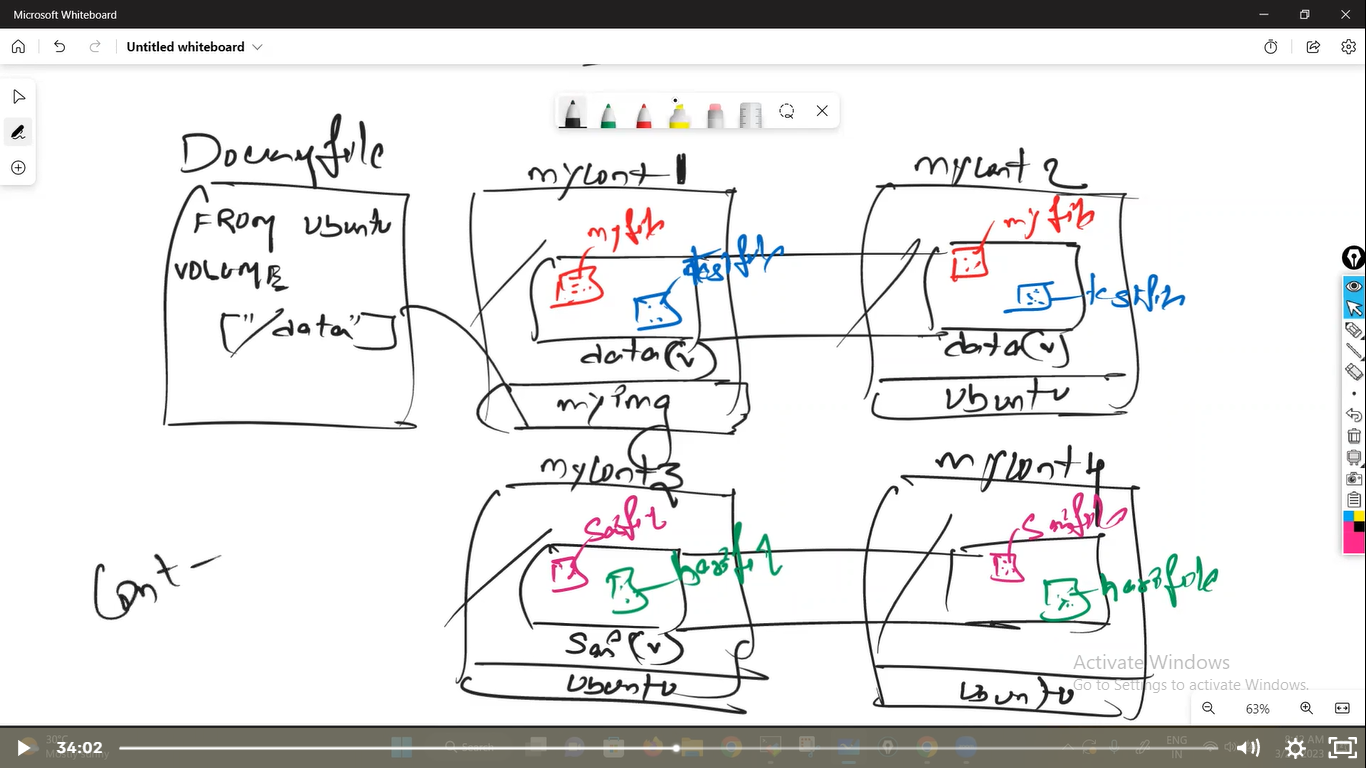 Microsoft Whiteboard
Untitled whiteboard
Dockerfile
FROM Ubuntu
VOLUME
["/data"]
mycont1
myfile
testfile
data(v)
myimg
mycont2
myfile
testfile
data(v)
Ubuntu
mycont3
saifile
harifile
Sai(v)
Ubuntu
mycont4
saifile
harifile
Ubuntu
Cont -
Activate Windows
Go to Settings to activate Windows.
63%
34:02
30°C
Mostly sunny
Search
ENG
IN